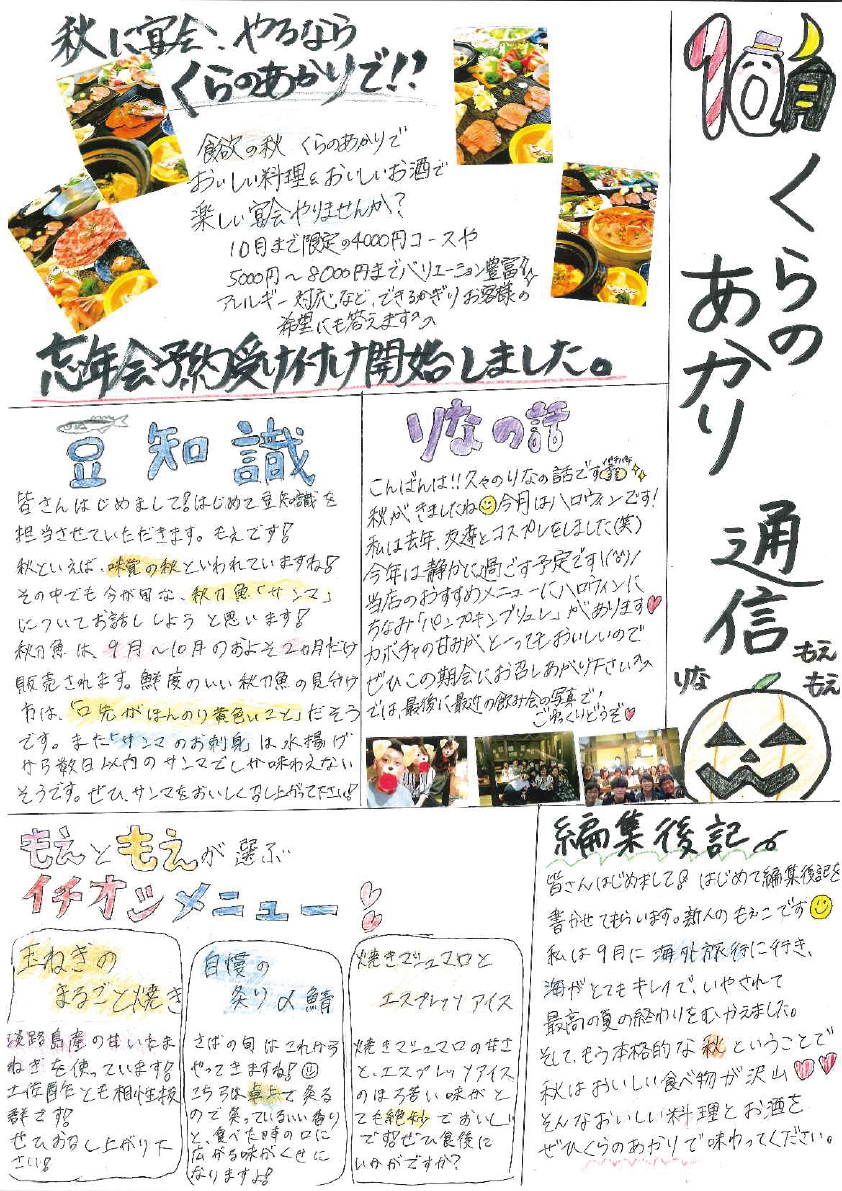 10月
くらの
あかり
通信
もえ
もえ
りな
秋に宴会、やるなら
くらのあかりで!!
食欲の秋 くらのあかりで
おいしい料理&おいしいお酒で
楽しい宴会やりませんか?
10月まで限定の4000円コースや
5000円〜8000円までバリエーション豊富
アレルギー対応など、できるかぎりお客様の
希望にも答えます^^
忘年会予約受け付け開始しました。
豆知識
皆さんはじめまして!はじめて豆知識を
担当させていただきます。もえです!
秋といえば、味覚の秋といわれていますね!
その中でも今が旬な、秋刀魚「サンマ」
についてお話ししようと思います!
秋刀魚は、9月〜10月のおよそ2カ月だけ
販売されます。鮮度のいい秋刀魚の見分け
方は、「口先がほんのり黄色いこと」だそう
です。また「サンマのお刺身」は水揚げ
から数日以内のサンマでしか味わえない
そうです。ぜひ、サンマをおいしく召し上がって下さい!
りなの話
こんばんは!!久々のりなの話です
秋がきましたね 今月はハロウィンです!
私は去年、友達とコスプレをしました(笑)
今年は静かに過ごす予定です!(^o^)/
当店のおすすめメニューにハロウィンに
ちなみ「パンプキンブリュレ」があります
カボチャの甘みが、とーってもおいしいので
ぜひこの期会にお召しあがり下さい^^
では、最後に最近の飲み会の写真で!
ごゆっくりどうぞ
もえともえが選ぶ
イチオシメニュー!
玉ねぎの
まるごと焼き
淡路島産の甘いたま
ねぎを使っています!
土佐酢とも相性抜
群です!
ぜひお召し上がり下
さい!
自慢の
炙り〆鯖
さばの旬はこれから
やってきますね!
こちらは卓上で炙る
ので炙っているいい香り
と、食べた時の口に
広がる味がくせに
なりますよ!
焼きマシュマロと
エスプレッソアイス
焼きマシュマロの甘さ
と、エスプレッソアイス
のほろ苦い味がと
ても絶妙でおいしい
です!ぜひ食後に
いかがですか?
編集後記
皆さんはじめまして!はじめて編集後記を
書かせてもらいます。新人のもえこです
私は9月に海外旅行に行き、
海がとてもキレイで、いやされて
最高の夏の終わりをむかえました。
そして、もう本格的な秋ということで
秋はおいしい食べ物が沢山
そんなおいしい料理とお酒を
ぜひくらのあかりで味わってください。